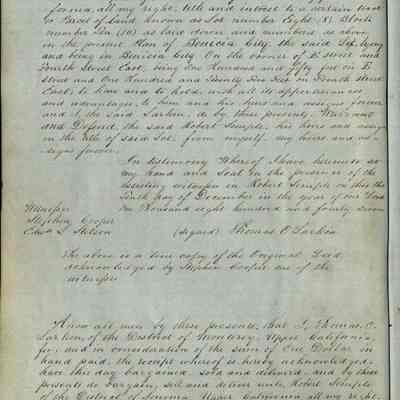 fornia, all my right, title and interest to a certain tract
or Parcel of Land known as Lot number Eight (8) Block
number Ten (10) as laid down and numbered as above
in the present Plan of Benicia City. the said Lot lying
and being in Benicia City. On the corner of E street and
Fourth Street East, being One Hundred and fifty feet on E
street and One Hundred and Twenty Five Feet on Fourth street
East; to have and to hold, with all its appurtenances
and advantages, to him and his heirs and assigns forever
and I, the said Larkin, do by these presents, Warrant
and Defend, the said Robert Semple, his heirs and assigns
in the title of said Lot, from myself, my heirs and as-
signs forever.
In testimony Whereof I have hereunto set
my hand and Seal in the presence of the
Tenth day of December in the year of our Lord
One Thousand eight hundred and fourty seven
Witnesses
Stephen Cooper
(signed) Thomas O Larkin
The above is a true copy of the Original Deed
acknowledged by Stephen Cooper one of the
witnesses
Know all men by these presents, that I, Thomas O.
Larkin, of the District of Monterey, Upper California,
for, and in consideration of the sum of One Dollar in
hand paid, the receipt whereof is hereby acknowledged,
have this day bargained, sold and delivered, and by these
presents do bargain, sell and deliver unto Robert Semple
of the District of Sonoma Upper California all my right,